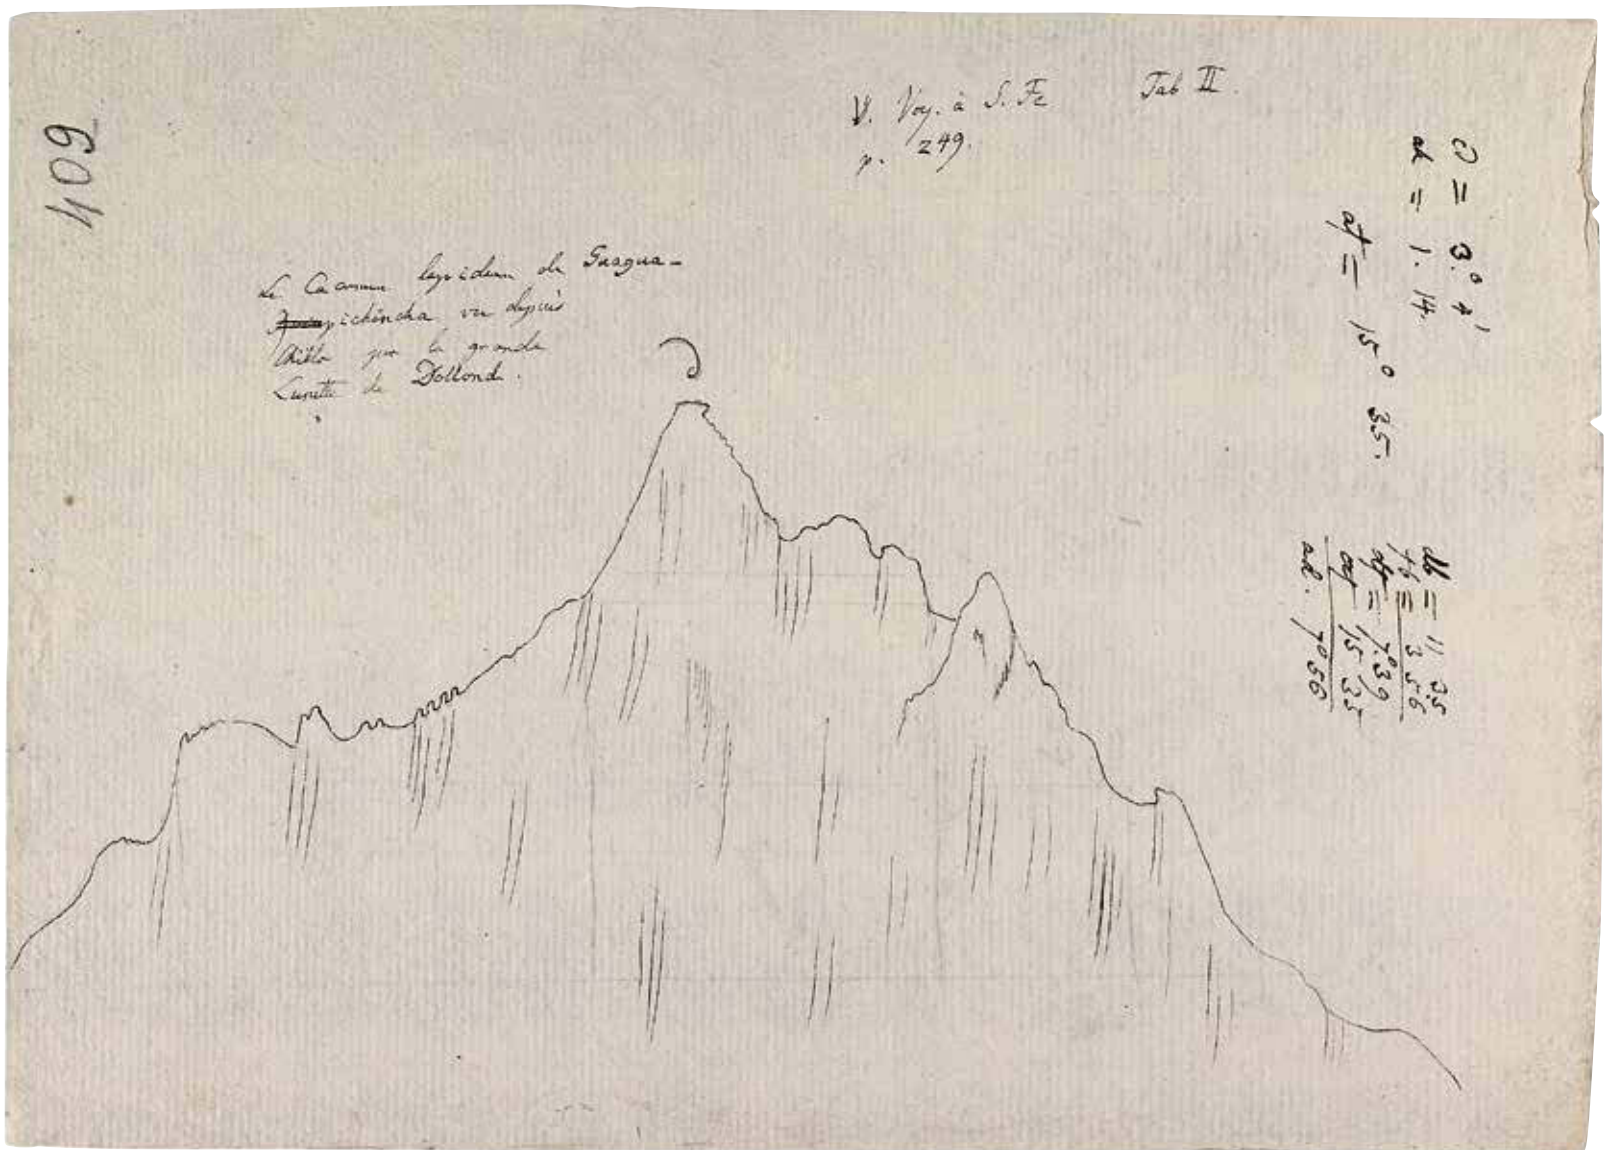 409
V. Voy. à S. Fe Tab II.
p. 249.
Le Cacumen lapideum de Guagua-
pichincha vu depuis
Chillo par la grande
Lunette de Dollond.
= 3.° 4'
ad = 1. 14.
af = 15° 35.
db = 11 35
fb = 3 56
df = 7.° 39
af 15 35
ad. 7° 56